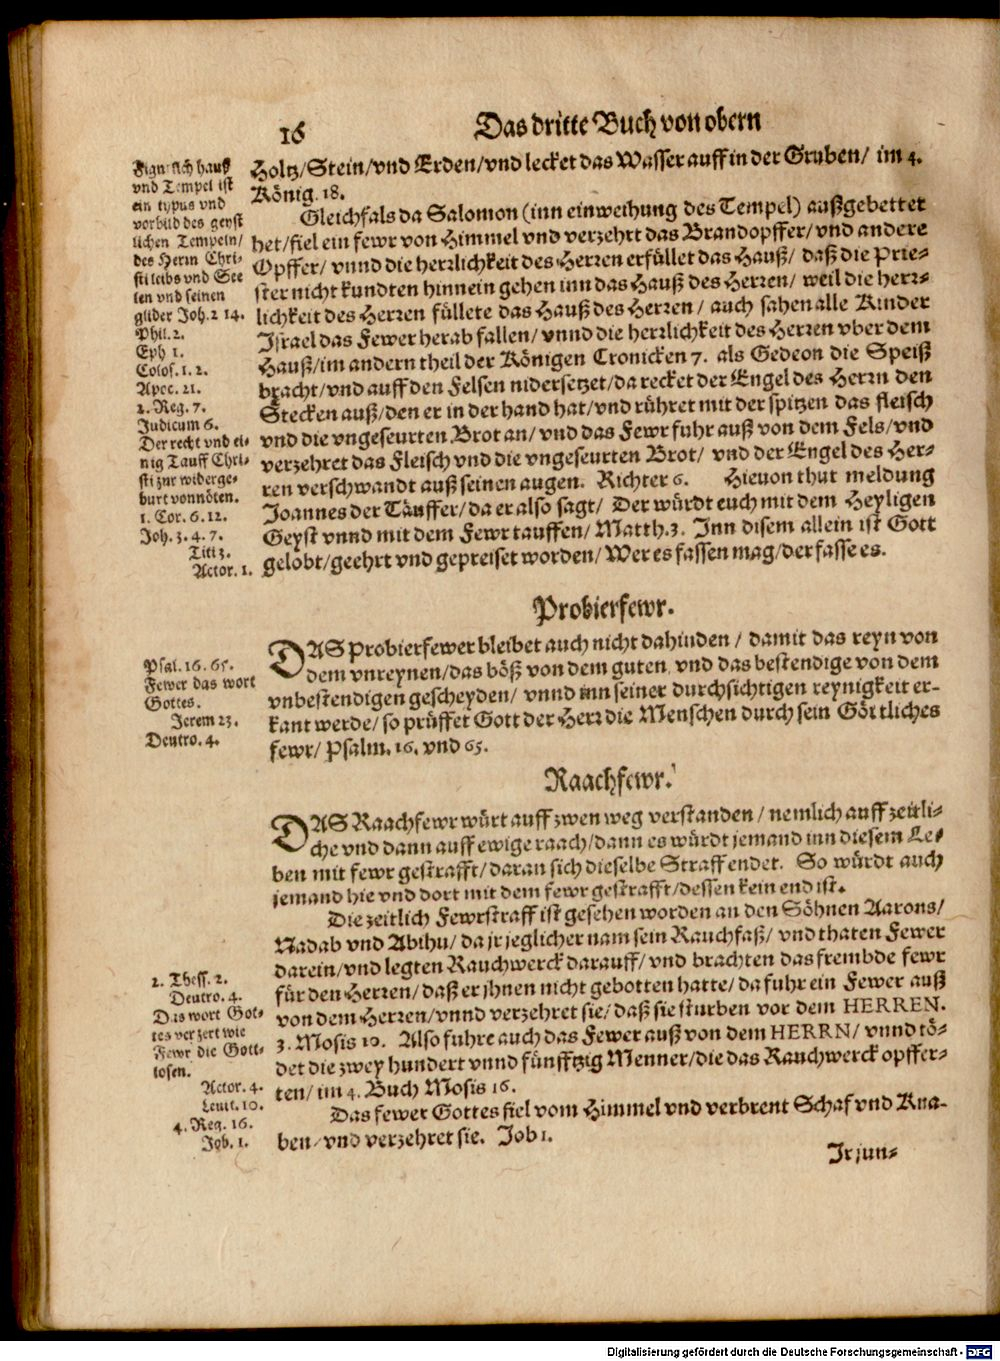 16
Das dritte Buch von obern
Holtz/Stein/vnd Erden/vnd lecket das Wasser auff in der Gruben/ im 4.
König. 18.
Gleichfals da Salomon (inn einweihung des Tempel) außgebettet
het/fiel ein fewr von Himmel vnd verzehrt das Brandopffer/vnd andere
Opffer/ vnnd die herrlichkeit des Herren erfüllet das Hauß/ daß die Prie-
ster nicht kundten hinnein gehen inn das Hauß des Herren/ weil die herr-
lichkeit des Herren füllete das Hauß des Herren/ auch sahen alle Kinder
Israel das Fewer herab fallen/ vnnd die herrlichkeit des Herren vber dem
Hauß/im andern theil der Königen Cronicken 7. als Gedeon die Speiß
bracht/vnd auff den Felsen nidersetzet/da recket der Engel des Herrn den
Stecken auß/den er in der hand hat/vnd rühret mit der spitzen das fleisch
vnd die vngeseurten Brot an/ vnd das Fewr fuhr auß von dem Fels/vnd
verzehret das Fleisch vnd die vngeseurten Brot/ vnd der Engel des Her-
ren verschwandt auß seinen augen. Richter 6. Hieuon thut meldung
Joannes der Täuffer/da er also sagt/ Der würdt euch mit dem Heyligen
Geyst vnnd mit dem Fewr tauffen/ Matth.3. Inn disem allein ist Gott
gelobt/geehrt vnd gepreiset worden/ Wer es fassen mag/der fasse es.
hauß
vnd Tempel ist
ein typus vnd
vorbild des geyst
lichen Tempeln/
des Herrn Chri-
sti leibs vnd See
len vnd seinen
glider Joh. 2 14.
Phil. 2.
Eph 1.
Colos. 1. 2.
Apoc. 21.
2. Reg. 7.
Judicum 6.
Der recht vnd ei-
nig Tauff Chri-
sti zur widerge-
burt vonnöten.
1. Cor. 6. 12.
Joh. 3. 4. 7.
Tit 3.
Actor. 1.
Probierfewr.
DAS Probierfewer bleibet auch nicht dahinden/ damit das reyn von
dem vnreynen/das böß von dem guten, vnd das bestendige von dem
vnbestendigen gescheyden/ vnnd inn seiner durchsichtigen reynigkeit er-
kant werde/ so prüffet Gott der Herr die Menschen durch sein Göttliches
fewr/ Psalm. 16. vnd 65.
Psal. 16. 65.
Fewer das wort
Gottes.
Jerem 23.
Deutro. 4.
Raachfewr.
DAS Raachfewr würt auff zwen weg verstanden/ nemlich auff zeitli-
che vnd dann auff ewige raach/dann es würdt jemand inn diesem Le-
ben mit fewr gestrafft/daran sich dieselbe Straff endet. So würdt auch
jemand hie vnd dort mit dem fewr gestrafft/dessen kein end ist.
Die zeitlich Fewrstraff ist gesehen worden an den Söhnen Aarons/
Nadab vnd Abihu/ da jr jeglicher nam sein Rauchfaß/ vnd thaten Fewer
darein/vnd legten Rauchwerck darauff/ vnd brachten das frembde fewr
für den Herren/ daß er jhnen nicht gebotten hatte/ da fuhr ein Fewer auß
von dem Herren/vnnd verzehret sie/ daß sie sturben vor dem HERREN.
3. Mosis 10. Also fuhre auch das Fewer auß von dem HERRN/ vnnd tö-
det die zwey hundert vnnd fünfftzig Menner/die das Rauchwerck opffer-
ten/ im 4. Buch Mosis 16.
Das fewer Gottes fiel vom Himmel vnd verbrent Schaf vnd Kna-
ben/vnd verzehret sie. Job 1.
2. Thess. 2.
Deutro. 4.
Das wort Got-
tes verzert wie
Fewr die Gott-
losen.
Actor. 4.
Leuit. 10.
4. Reg. 16.
Job. 1.
Ir jun-
Digitalisierung gefördert durch die Deutsche Forschungsgemeinschaft - DFG